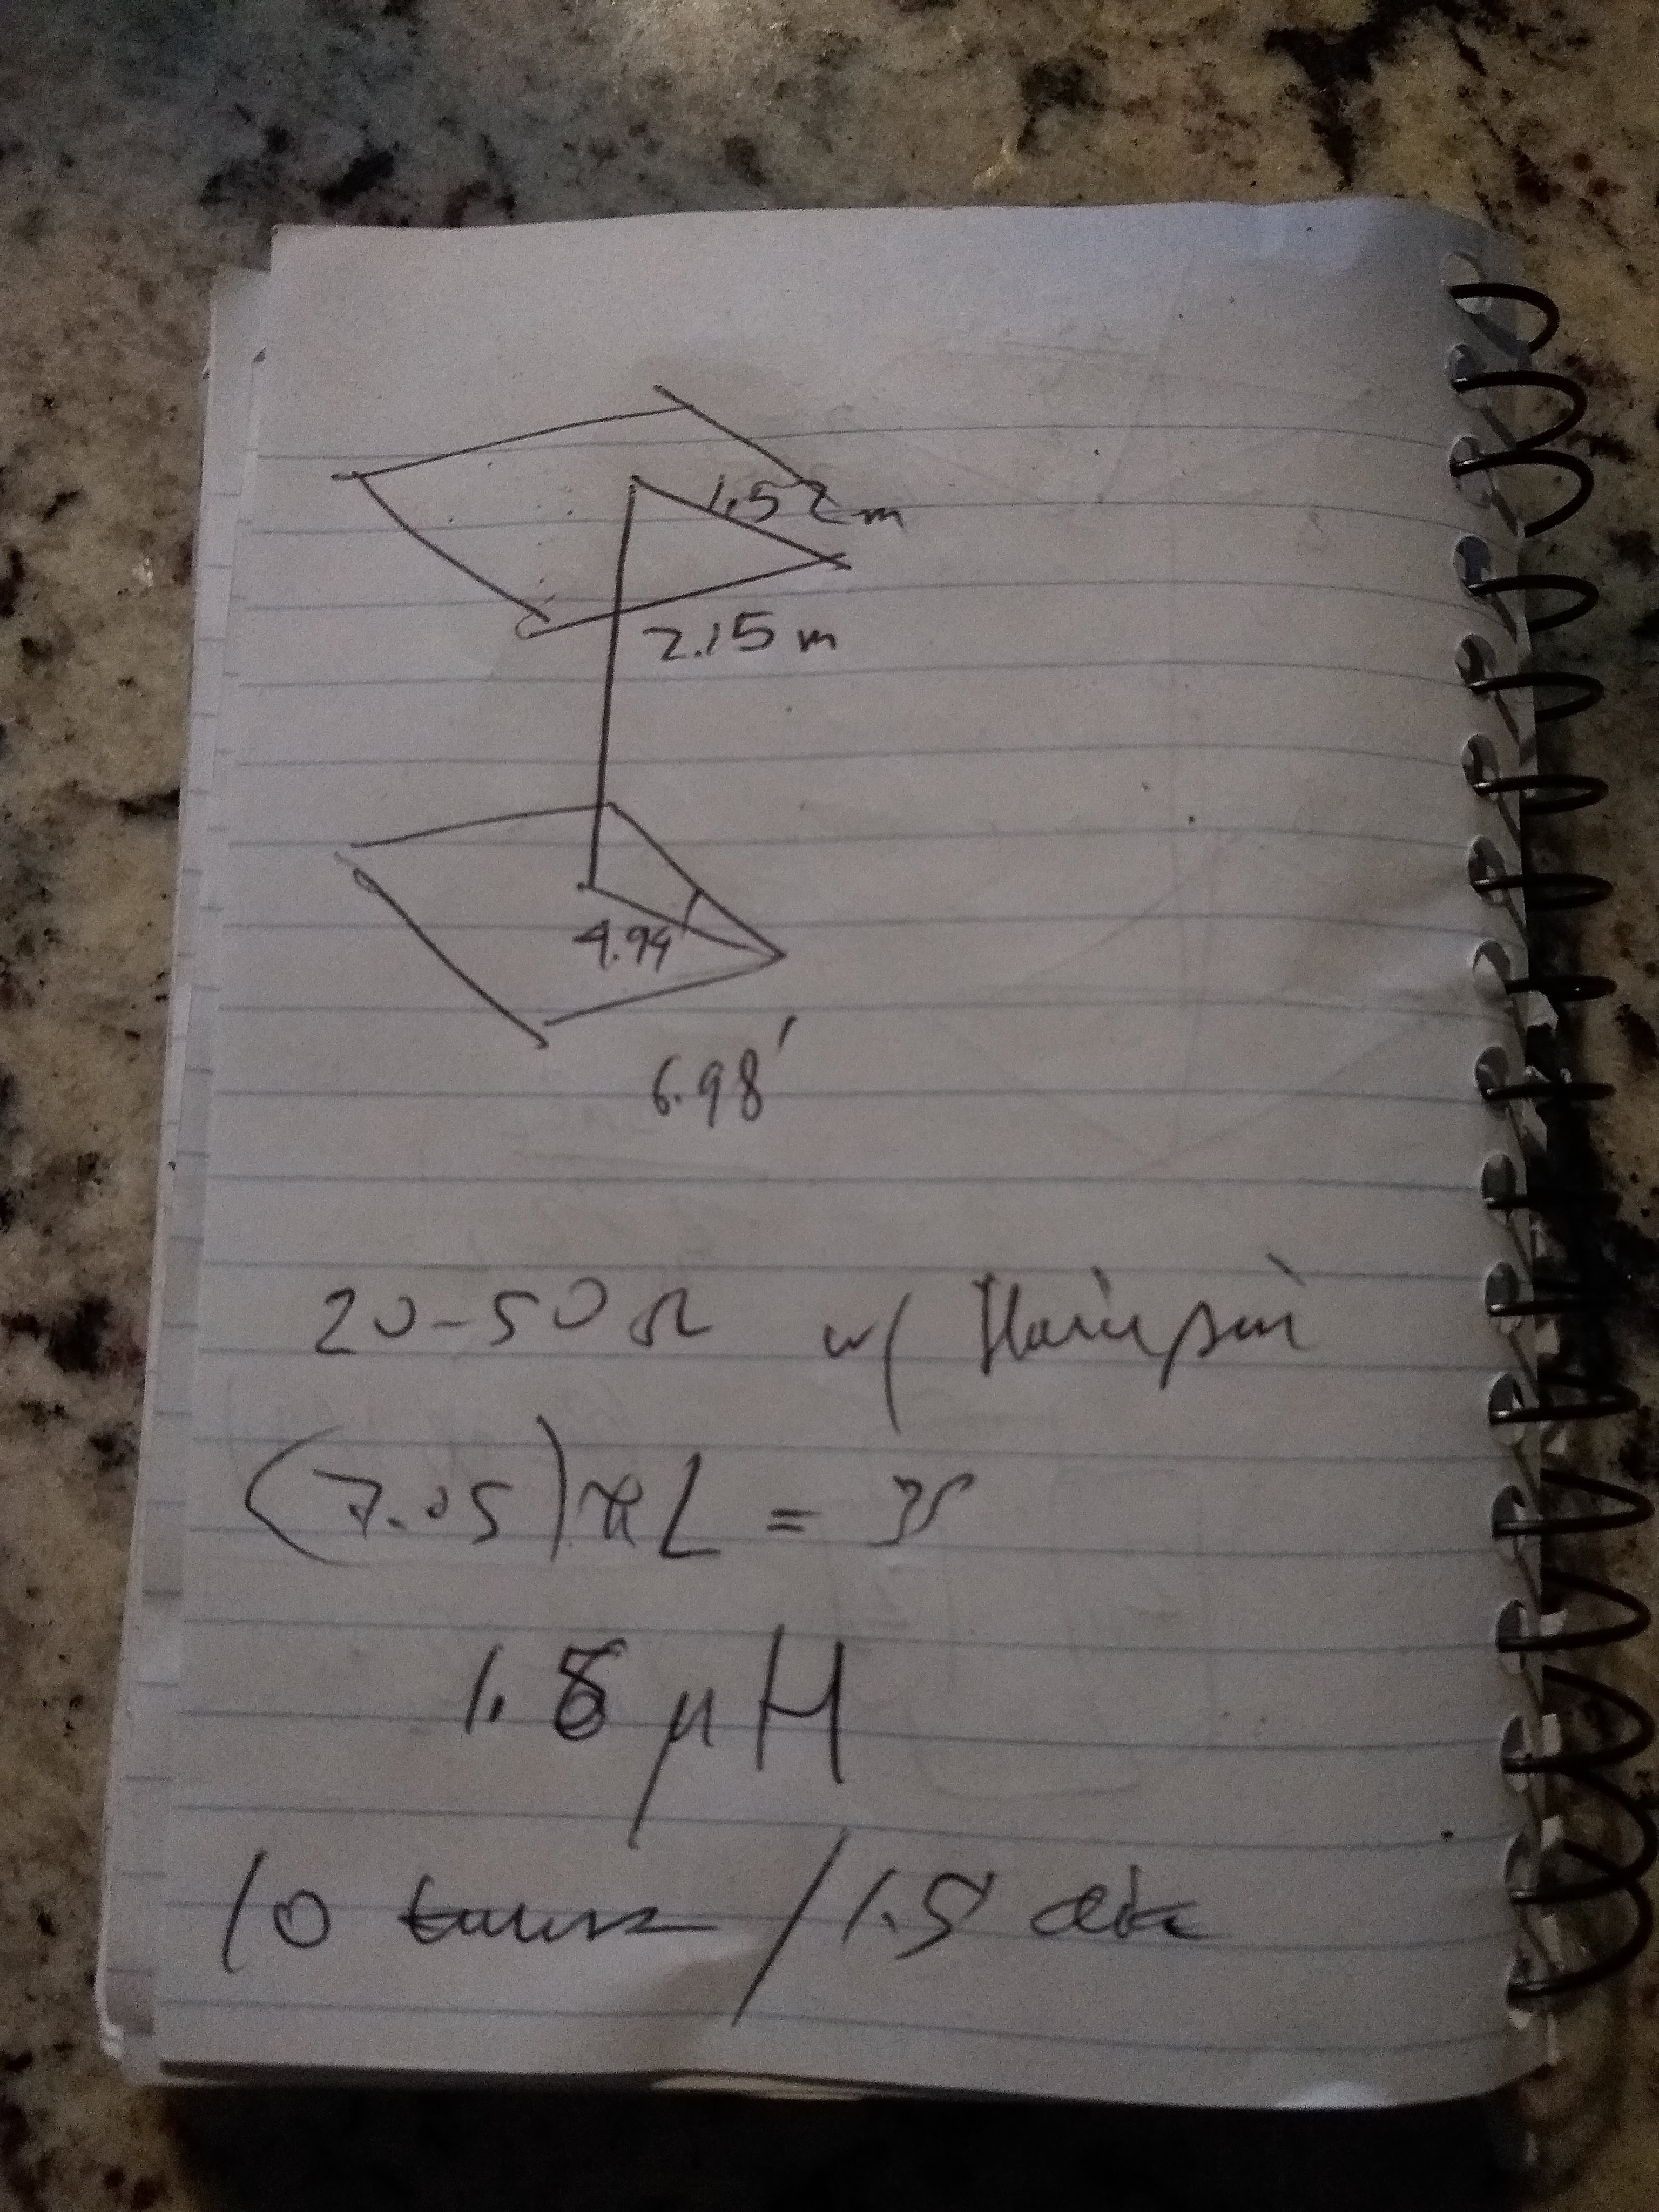 1.52 m
2.15 m
4.94'
6.98'
20-50 Ω w/ Hairpin
(7.05) L = 35
1.8 μH
10 turns / 1.5 dia